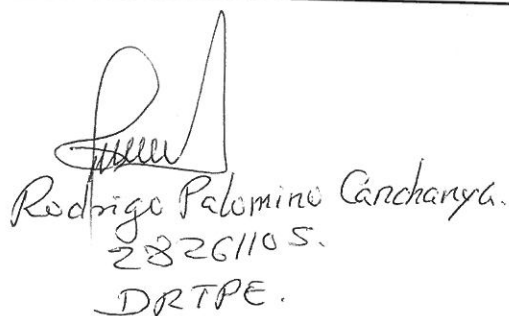 Rodrigo Palomino Canchanya.
28261105.
DRTPE.